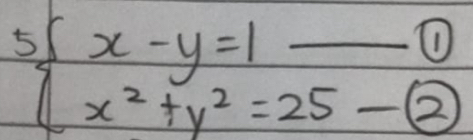 5{ x - y = 1 —— ①
x² + y² = 25 — ②